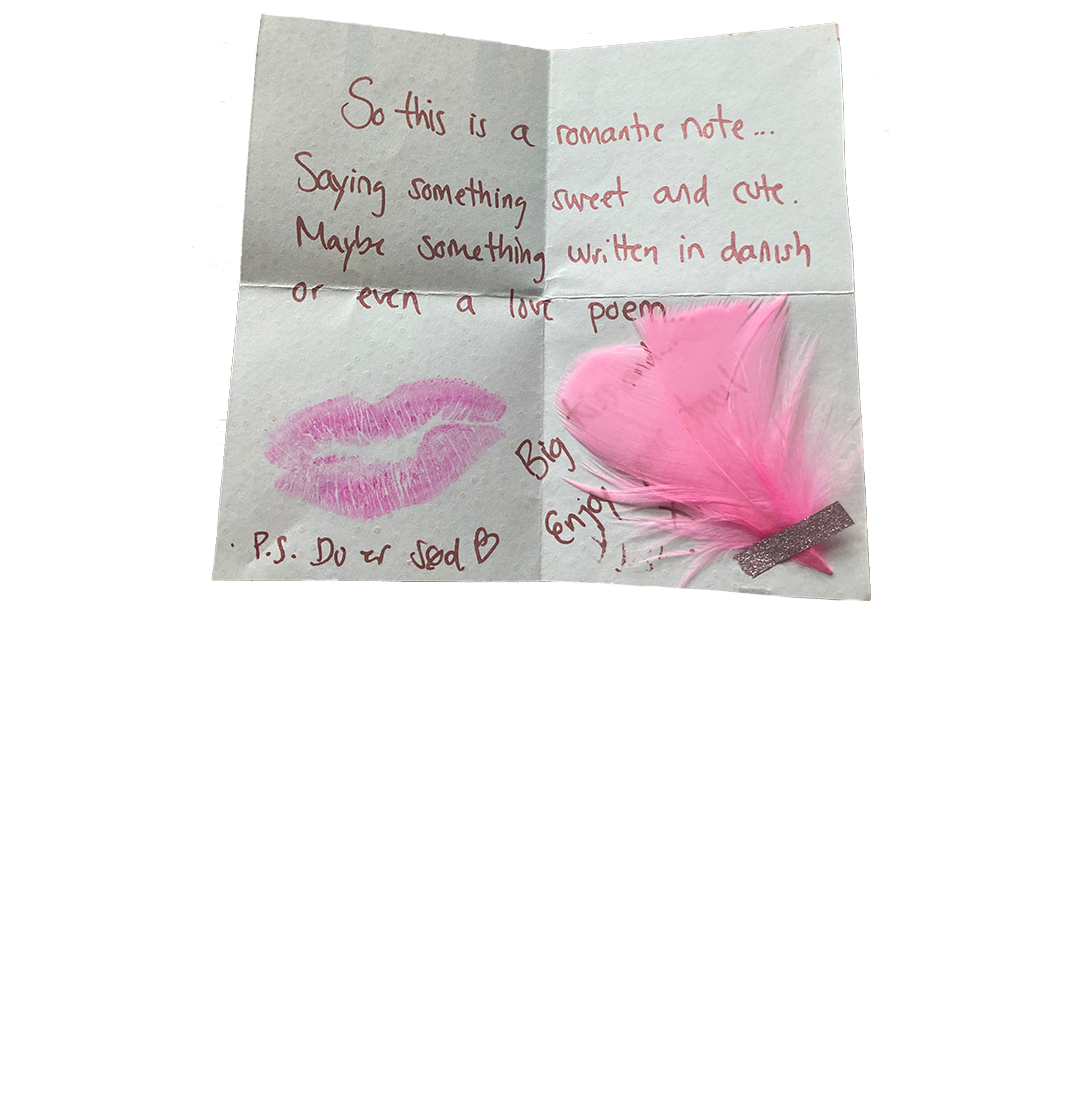 So this is a romantic note...
Saying something sweet and cute.
Maybe something written in danish
or even a love poem...
Big
Enjoy
P.S. Du er sød